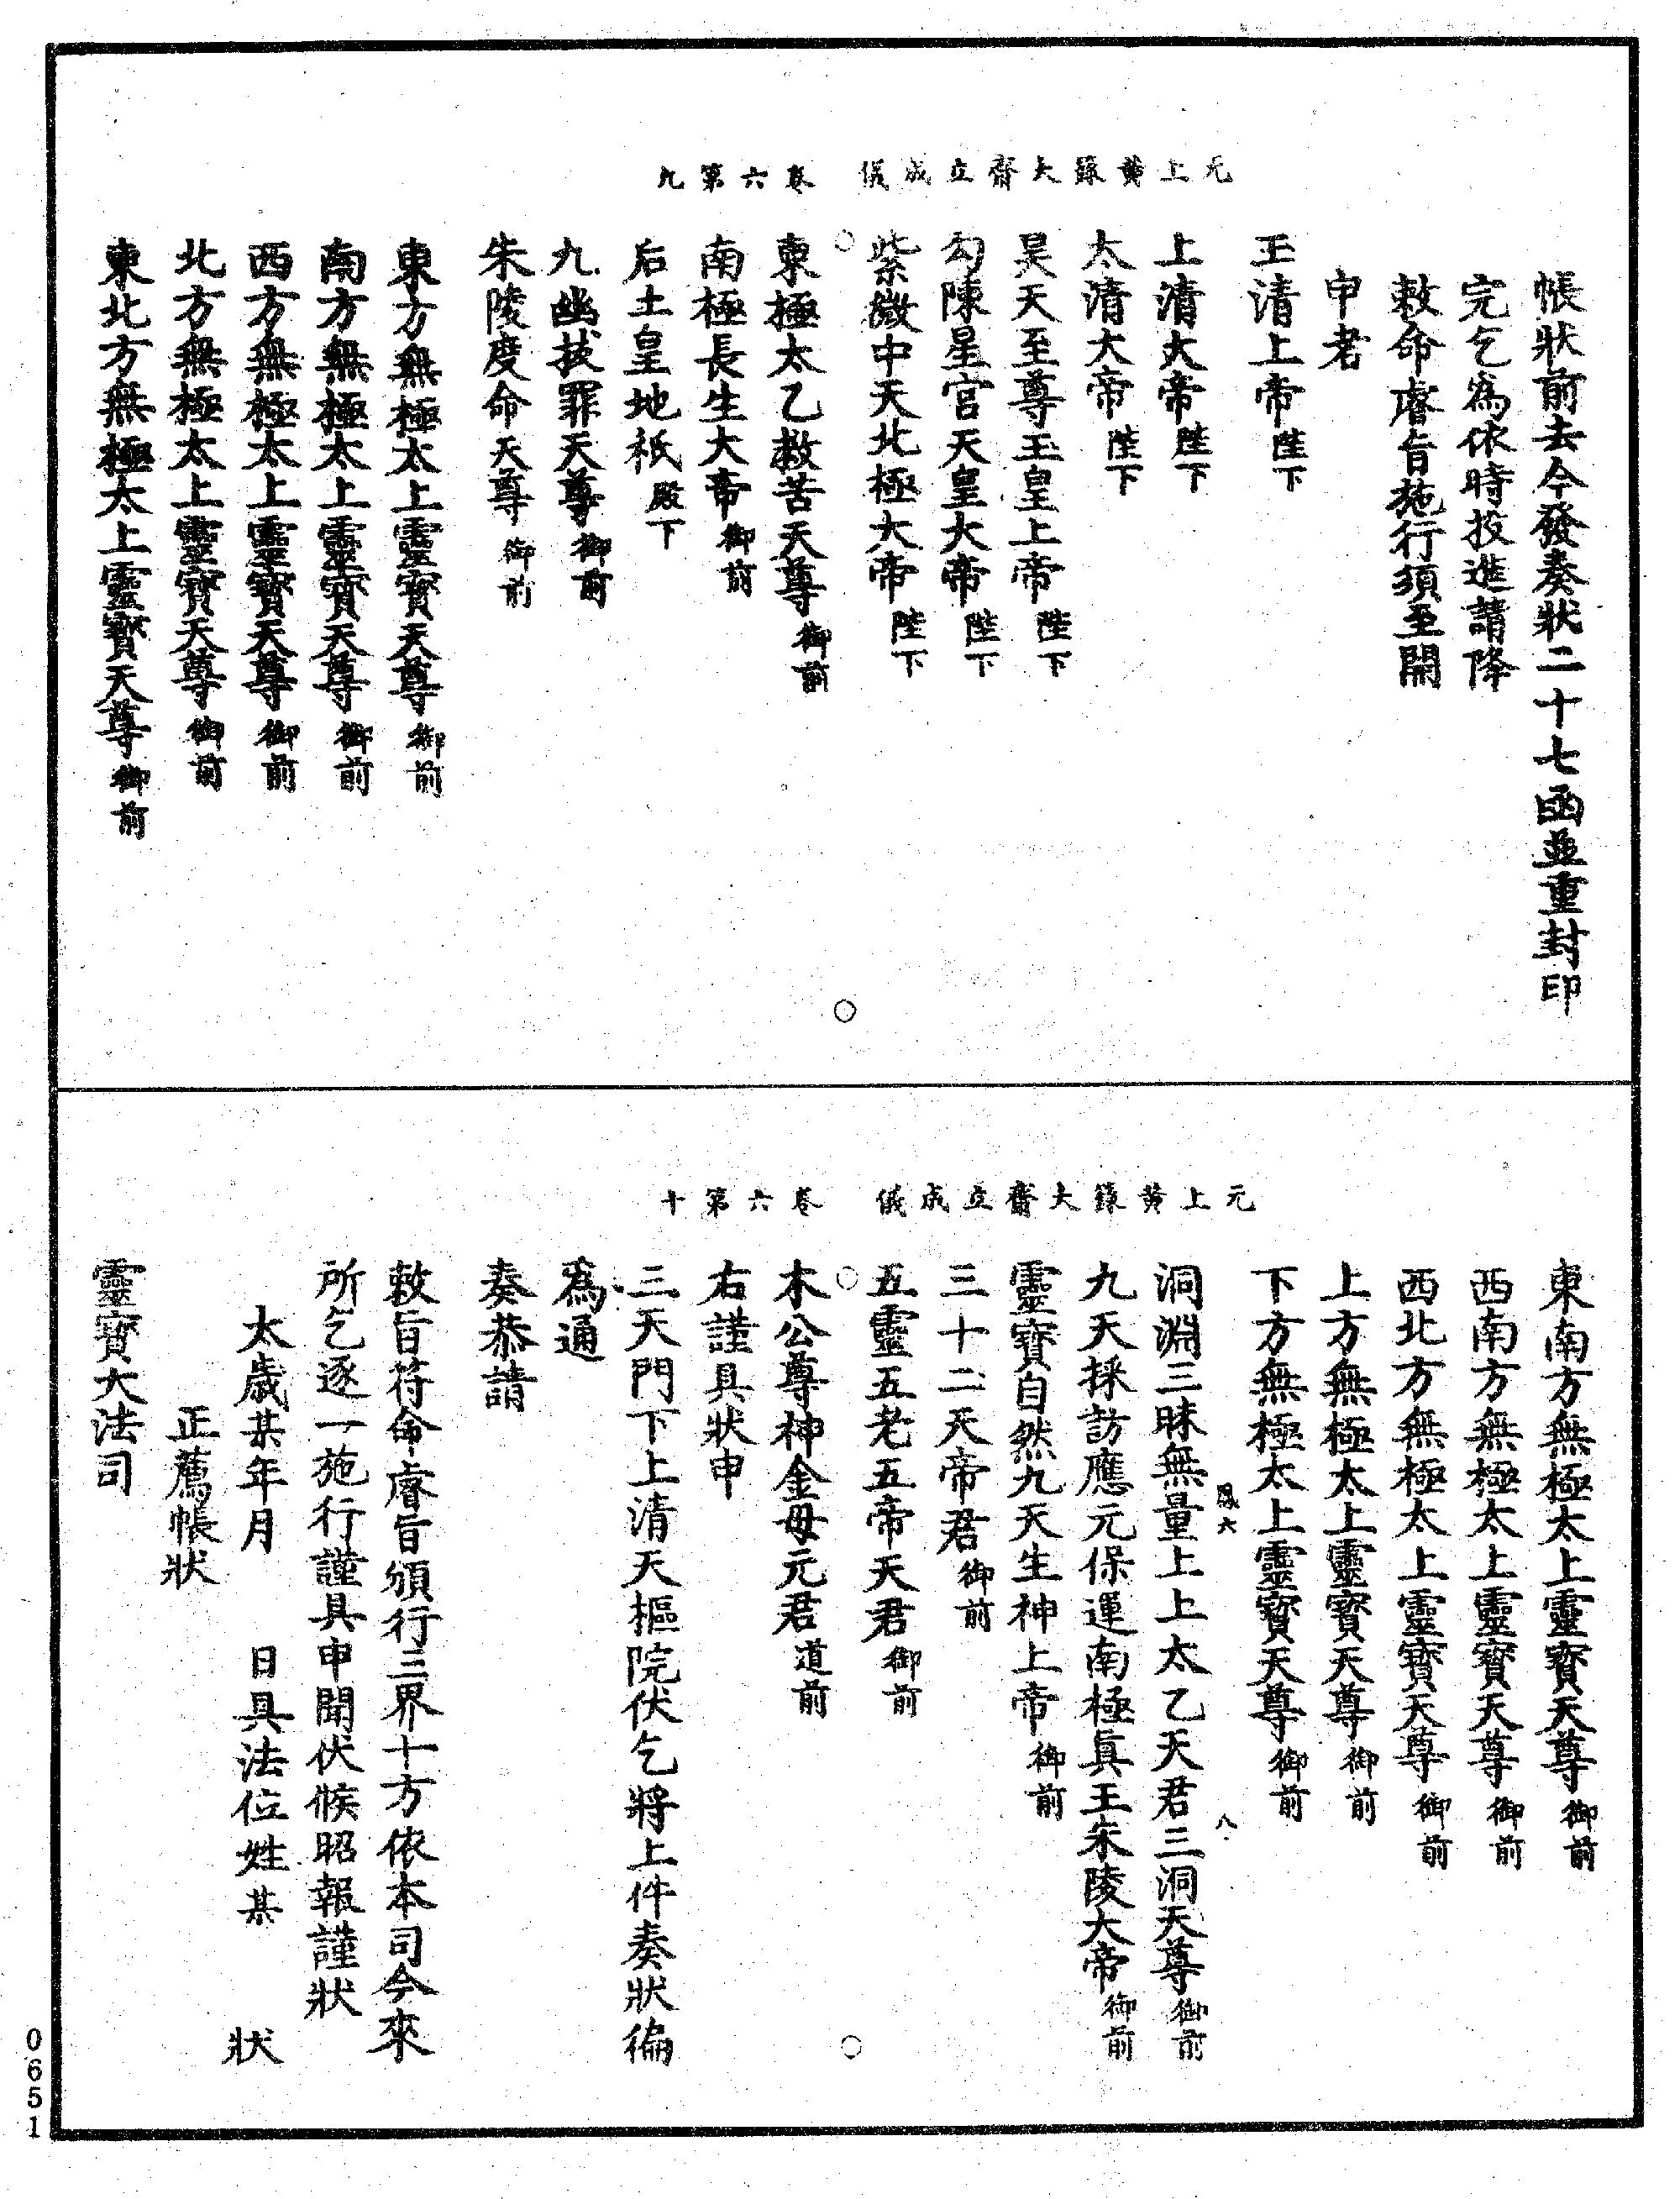 元上黃籙大齋立成儀　卷六第九
帳狀前去今發奏狀二十七函並重封印
完乞為依時投進請降
敕命睿旨施行須至開
申者
玉清上帝陛下
上清大帝陛下
太清大帝陛下
昊天至尊玉皇上帝陛下
勾陳星宮天皇大帝陛下
紫微中天北極大帝陛下
東極太乙救苦天尊御前
南極長生大帝御前
后土皇地祇殿下
九幽拔罪天尊御前
朱陵度命天尊御前
東方無極太上靈寶天尊御前
南方無極太上靈寶天尊御前
西方無極太上靈寶天尊御前
北方無極太上靈寶天尊御前
東北方無極太上靈寶天尊御前
元上黃籙大齋立成儀　卷六第十
東南方無極太上靈寶天尊御前
西南方無極太上靈寶天尊御前
西北方無極太上靈寶天尊御前
上方無極太上靈寶天尊御前
下方無極太上靈寶天尊御前
八
洞淵三昧無量上上太乙天君三洞天尊御前
九天採訪應元保運南極真王朱陵大帝御前
靈寶自然九天生神上帝御前
三十二天帝君御前
五靈五老五帝天君御前
木公尊神金母元君道前
右謹具狀申
三天門下上清天樞院伏乞將上件奏狀徧
為通
奏恭請
敕旨符命睿旨頒行三界十方依本司今來
所乞逐一施行謹具申聞伏候昭報謹狀
太歲某年月　日具法位姓某　狀
正薦帳狀
靈寶大法司
0651